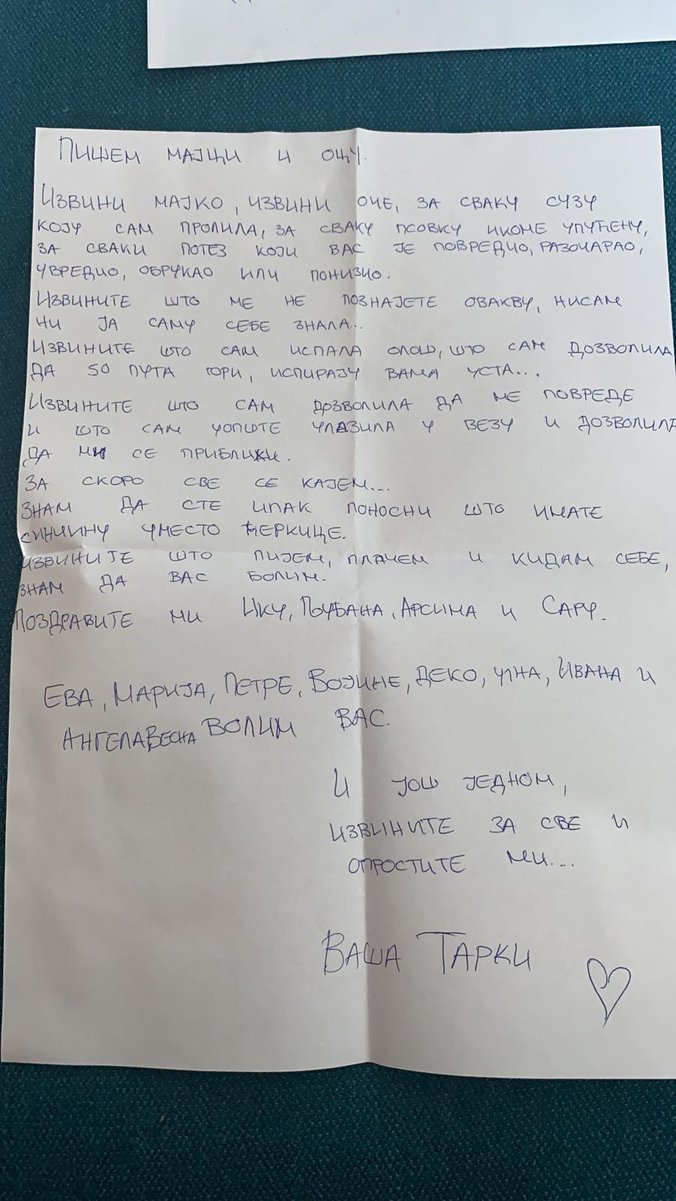 Пишем мајци и оцу.
Извини мајко, извини оче, за сваку сузу
коју сам пролила, за сваку псовку икоме упућену,
за сваки потез који вас је повредио, разочарао,
увредио, обрукао или понизио.
Извините што ме не познајете овакву, нисам
ни ја саму себе знала..
Извините што сам испала олош, што сам дозволила
да 50 пута гори, испирају вама уста...
Извините што сам дозволила да ме повреде
и што сам уопште улазила у везу и дозволила
да ми се приближи.
За скоро све се кајем...
Знам да сте ипак поносни што имате
синчину уместо ћеркице.
Извините што пијем, плачем и кидам себе,
знам да вас болим.
Поздравите ми Ику, Љубана, Арсима и Сару.
Ева, Марија, Петре, Војине, Деко, Ивана и
Ангела Весна волим вас.
И још једном,
извините за све и
опростите ми...
Ваша Тарки